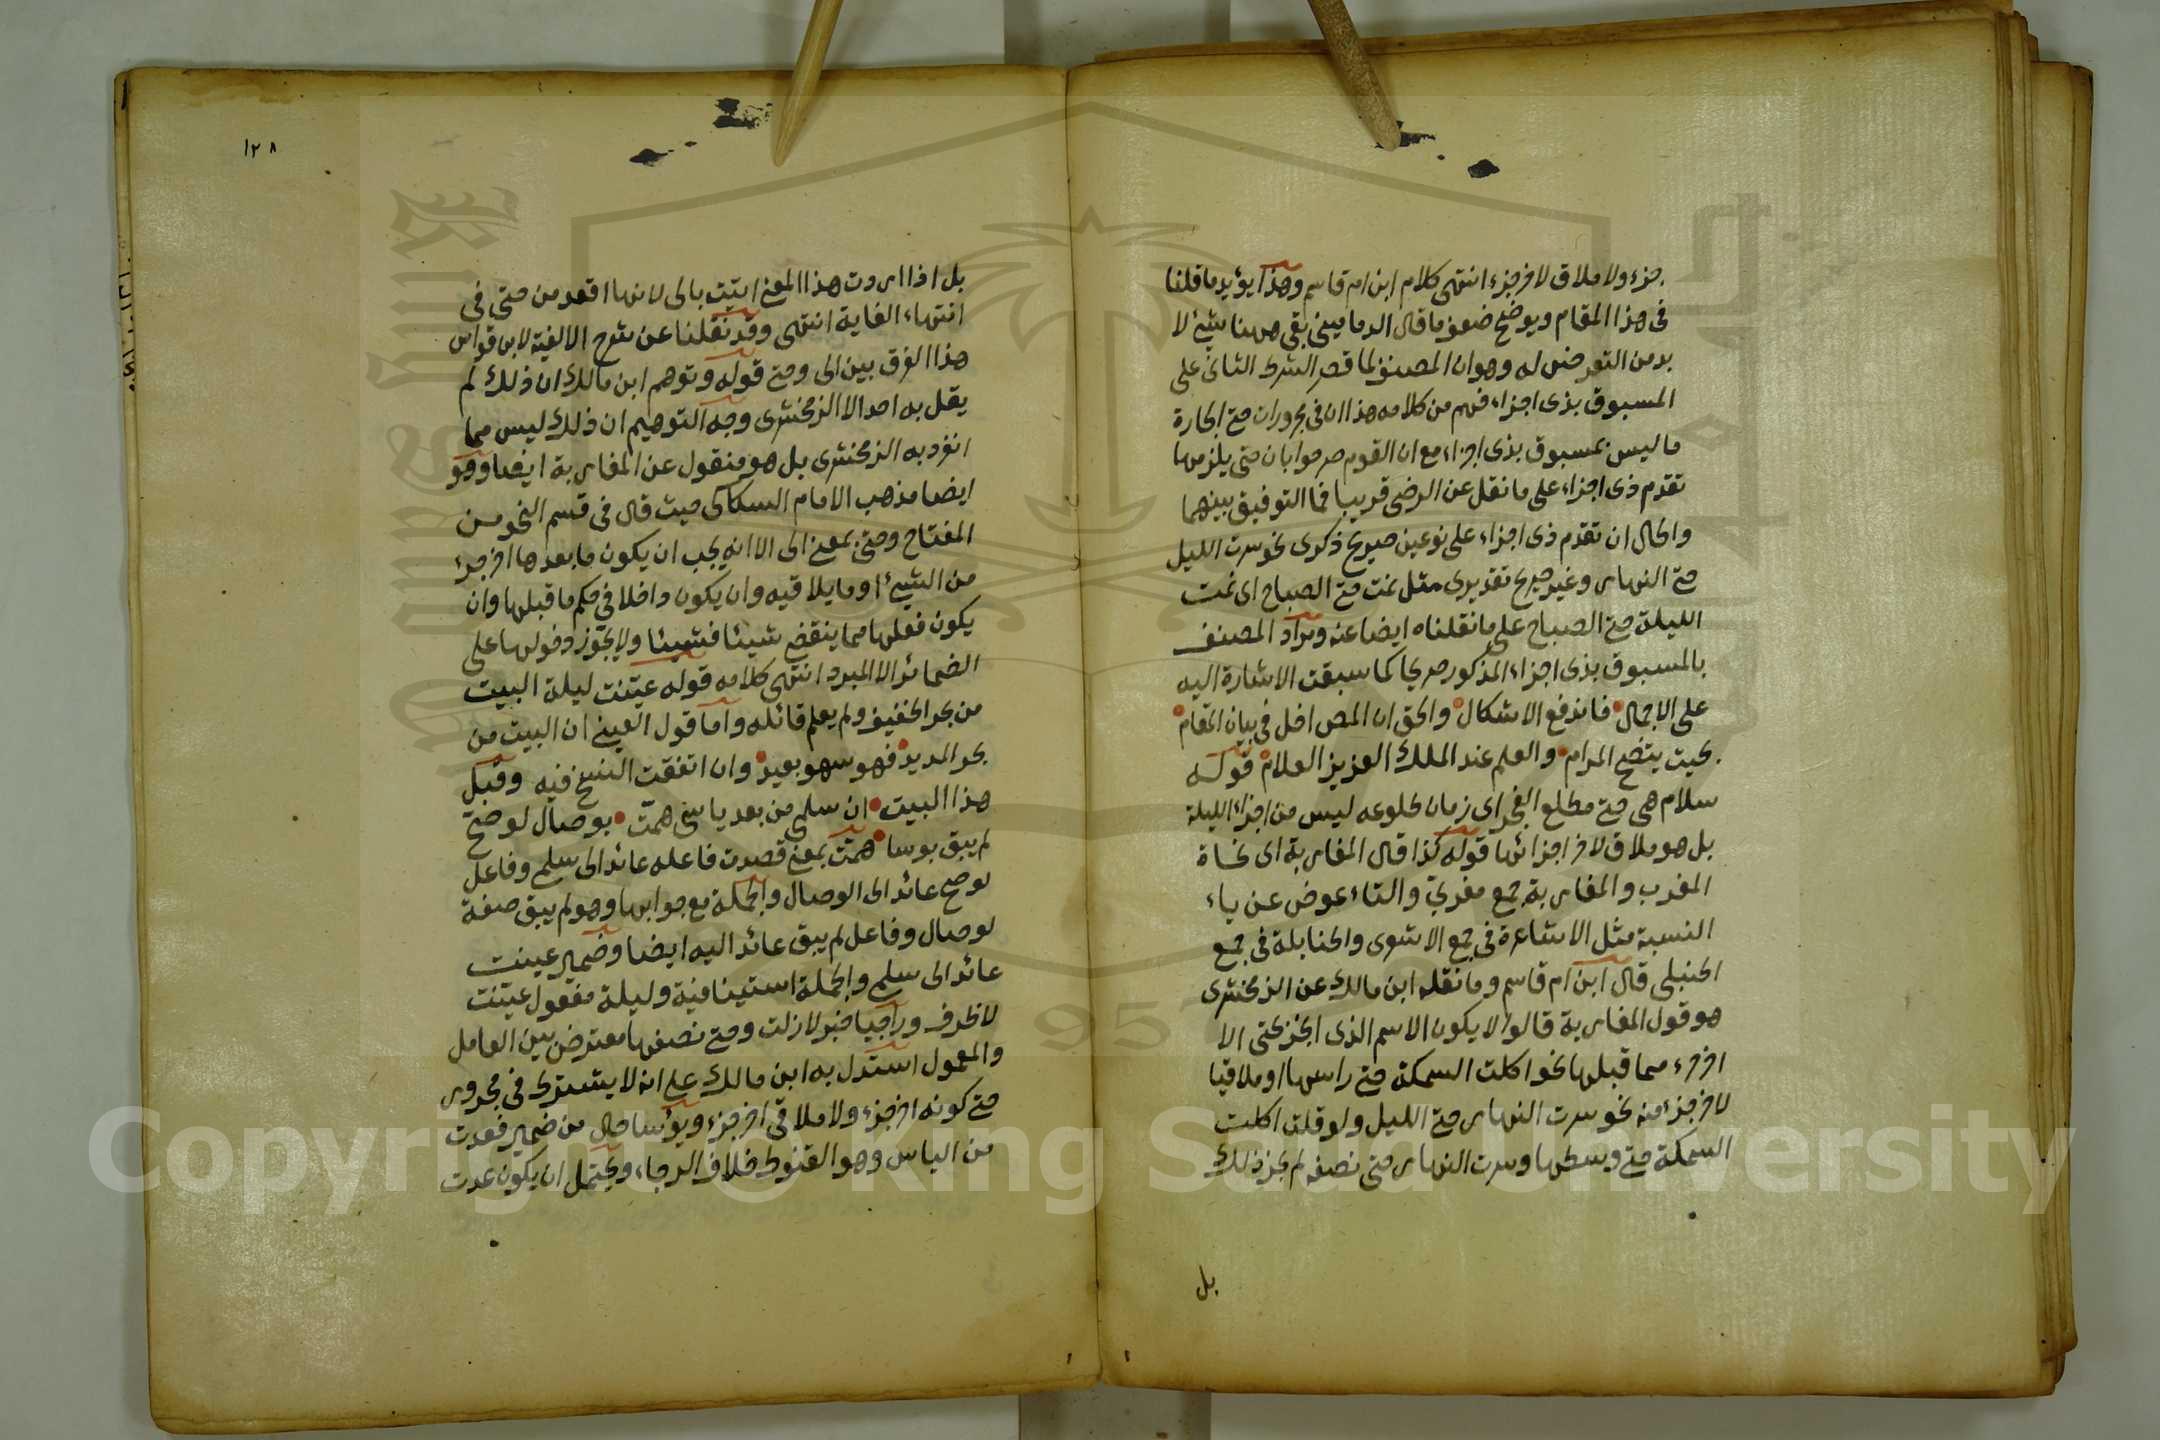 جزء ولا ملاق لاخر جزء انتهى كلام ابن ام قاسم وهذا يؤيد ما قلنا
فى هذا المقام ويوضح ضعف ما قال الدمامينى بقى ههنا شيئ لا
بد من التعرض له وهو ان المصنف لما قصر الشرط الثانى على
المسبوق بذى اجزاء فهم من كلامه هذا ان فى مجرورات حتى الجارة
ما ليس بمسبوق بذى اجزاء مع ان القوم صرحوا بان حتى يلزمها
تقدم ذى اجزاء على ما نقل عن الرضى قريبا فما التوفيق بينهما
والحال ان تقدم ذى اجزاء على نوعين صريح ذكرى نحو سرت الليل
حتى النهار وغير صريح تقديرى مثل نمت حتى الصباح اى نمت
الليلة حتى الصباح على ما نقلناه ايضا عنه ومراد المصنف
بالمسبوق بذى اجزاء المذكور صريحا كما سبقت الاشارة اليه
على الاجمال فاندفع الاشكال والحق ان المص اخل فى بيان المقام
بحيث يتضح المرام والعلم عند الملك العزيز العلام قوله
سلام هى حتى مطلع الفجر اى زمان طلوعه ليس من اجزاء الليلة
بل هو ملاق لاخر اجزائها قوله كذا قال المغاربة اى نحاة
المغرب والمغاربة جمع مغربي والتاء عوض عن ياء
النسبة مثل الاشاعرة فى جمع الاشعرى والحنابلة فى جمع
الحنبلى قال ابن ام قاسم وما نقله ابن مالك عن الزمخشرى
هو قول المغاربة قالوا لا يكون الاسم الذى انجر بحتى الا
اخر جزء مما قبلها نحو اكلت السمكة حتى راسها او ملاقيا
لاخر جزء منه نحو سرت النهار حتى الليل ولو قلت اكلت
السمكة حتى وسطها وسرت النهار حتى نصفه لم يجز ذلك
بل
١٢٨
بل اذا اردت هذا المعنى اتيت بالى لانها اقعد من حتى فى
انتهاء الغاية انتهى وقد نقلنا عن شرح الالفية لابن قواس
هذا الفرق بين الى وحتى قوله وتوهم ابن مالك ان ذلك لم
يقل به احد الا الزمخشرى وجه التوهيم ان ذلك ليس مما
انفرد به الزمخشرى بل هو منقول عن المغاربة ايضا وهو
ايضا مذهب الامام السكاكى حيث قال فى قسم النحو من
المفتاح وحتى بمعنى الى الا انه يجب ان يكون ما بعدها اخر جزء
من الشيئ او ما يلاقيه وان يكون داخلا فى حكم ما قبلها وان
يكون فعلها مما ينقضى شيئا فشيئا ولا يجوز دخولها على
الضمائر الا المبرد انتهى كلامه قوله عينت ليلة البيت
من بحر الخفيف ولم يعلم قائله واما قول العينى ان البيت من
بحر المديد فهو سهو بعيد وان اتفقت النسخ فيه وقبل
هذا البيت ان سلمى من بعد ياسى همت بوصال لو صح
لم يبق بوسا همت بمعنى قصدت فاعله عائد الى سلمى وفاعل
لو صح عائد الى الوصال والجملة مع جوابها وهو لم يبق صفة
لوصال وفاعل لم يبق عائد اليه ايضا وضمير عينت
عائد الى سلمى والجملة استينافية وليلة مفعول عينت
لا ظرف وراجيا خبر لا زلت وحتى نصفها معترض بين العامل
والمعمول استدل به ابن مالك على انه لا يشترط فى مجرور
حتى كونه اخر جزء ولا ملاقى اخر جزء ويؤسا حال من ضمير فعدت
من الياس وهو القنوط خلاف الرجاء ويحتمل ان يكون عدت